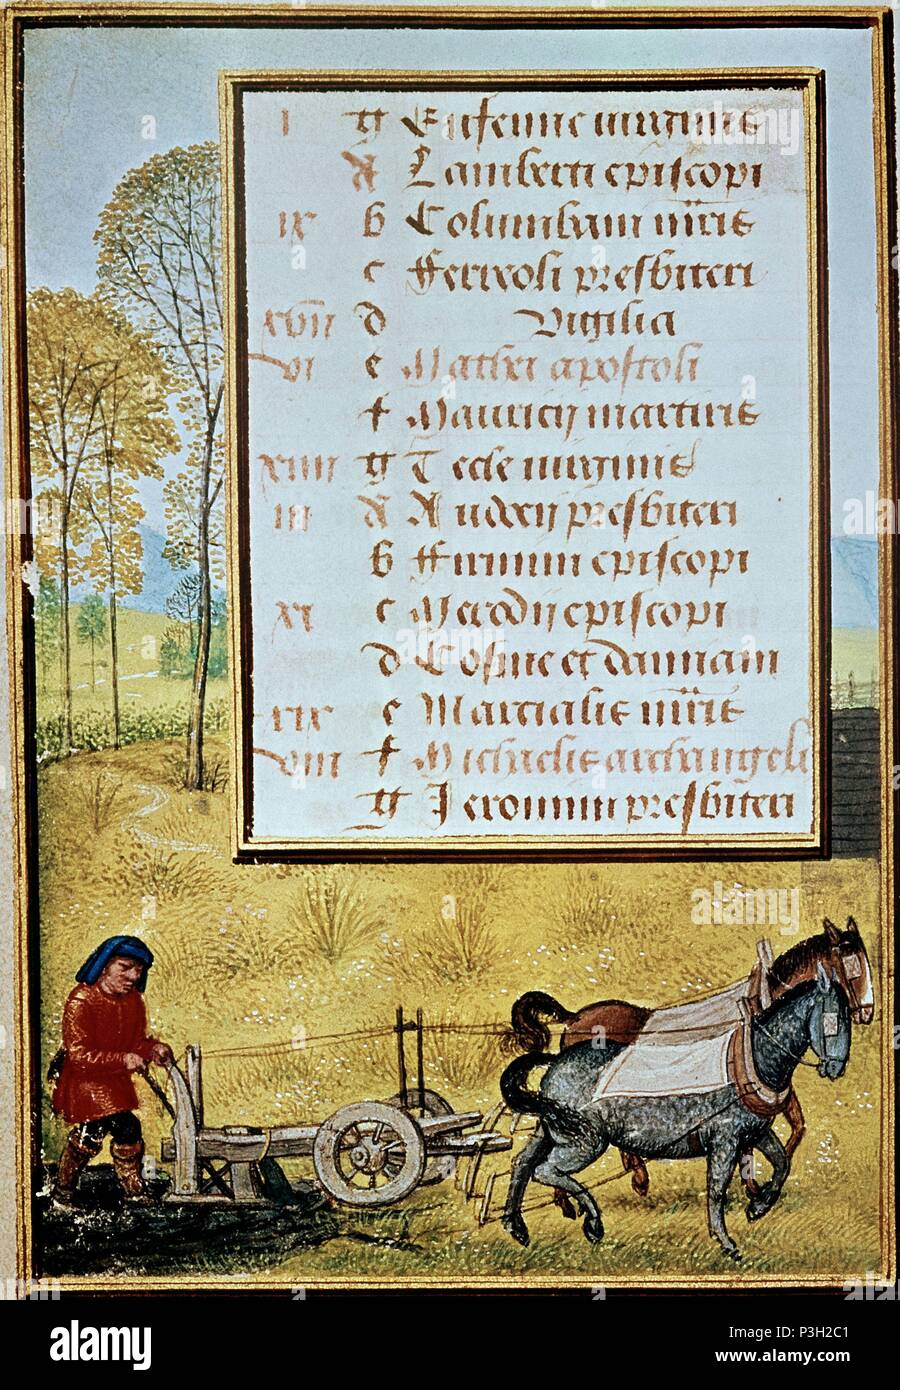 i g Eufemie virginis
A Lamberti episcopi
ix b Columbani m̄ris
c Ferreoli presbiteri
xvii d Vigilia
vi e Mathei apostoli
f Mauricij martiris
g Tecle virginis
iii A Andree presbiteri
b Firmini episcopi
xi c episcopi
d Cosme et damiani
xix e Marcialis m̄ris
viii f Michaelis archangeli
g Jeronimi presbiteri
alamy
alamy stock photo
alamy
Image ID: P3H2C1
www.alamy.com